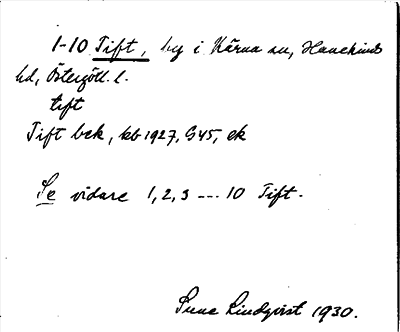 1-10 Tift, by i Kärna sn, Hanekinds
hd, Östergötl. l.
tift
Tift bek, kb 1927, G45, ek
Se vidare 1, 2, 3 --- 10 Tift.
Sune Lindqvist 1930.